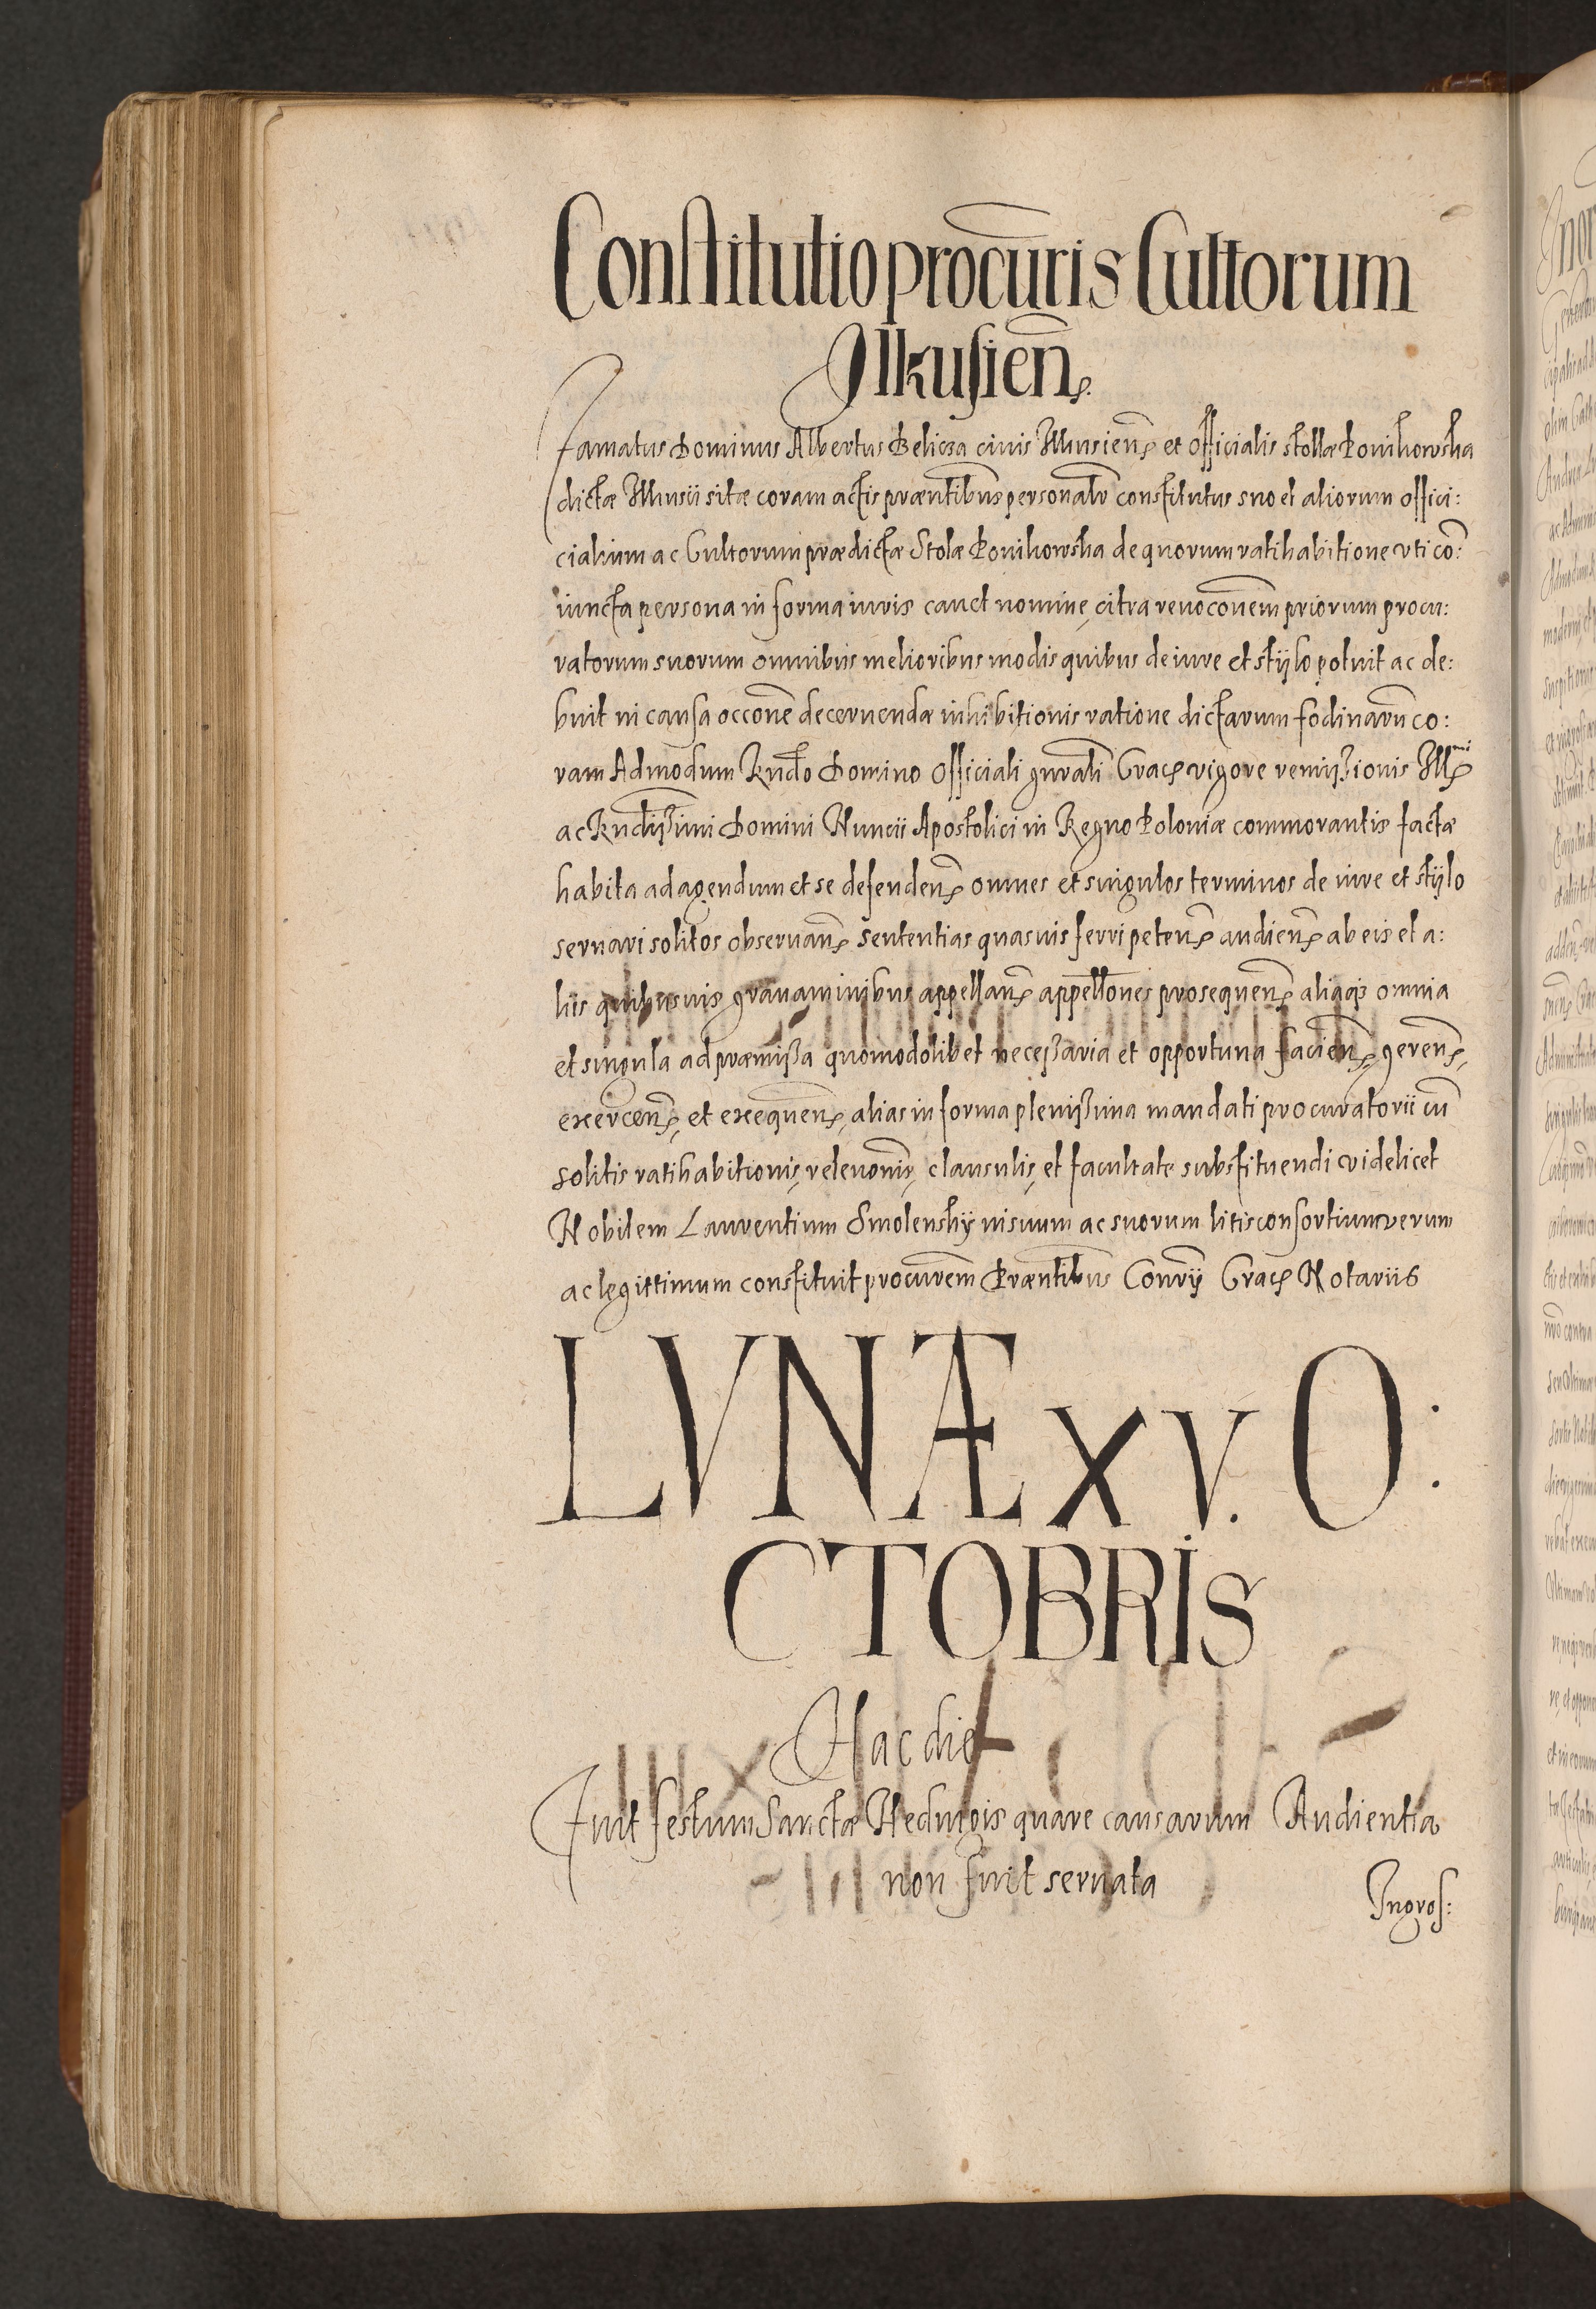 Constitutio procuris Cultorum
Ilkusien̄.
Famatus Dominus Albertus Belicza ciuis Ilkusien̄ et officialis stollæ Ponikowska
dictæ Ilkusii sitæ coram actis præntibus personalr̄ constitutus suo et aliorum offici:
cialium ac Cultorum prædictæ Stolæ Ponikowska de quorum ratihabitione vti cō:
iuncta persona in forma iuris cauet nomine, citra reuoconem priorum procu:
ratorum suorum omnibus melioribus modis quibus de iure et stÿlo potuit ac de:
buit in causa occone decernendæ inhibitionis ratione dictarum fodinarū co:
ram Admodum Rndo Domino Officiali gnrali Crac. vigore remißionis Ill.mi
ac Rndißimi Domini Nuncii Apostolici in Regno Poloniæ commorantis factæ
habita ad agendum et se defenden̄ omnes et singulos terminos de iure et stÿlo
seruari solitos obseruan̄ sententias quasuis ferri peten̄ audien̄ ab eis et a:
liis quibusuis grauaminibus appellan̄ appellones prosequen̄ aliaqꝫ omnia
et singula ad præmißa quomodolibet neceßaria et opportuna facien̄, geren̄,
exercen̄, et exequen̄, alias in forma plenißima mandati procuratorii cū
solitis ratihabitionis, releuonis, clausulis, et facultate substituendi videlicet
Nobilem Laurentium Smolenskÿ in suum ac suorum litisconsortium verum
ac legittimum constituit procurem Præntibus Conrÿ Crac. Notariis
LVNÆ XV. O:
CTOBRIS
Hac die
Fuit festum Sanctæ Heduigis quare causarum Audientia
non fuit seruata
Ingros: